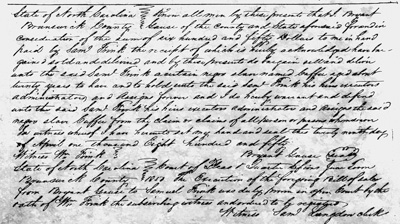 State of North Carolina } Know all men by these presents that I Bryant
Brunswick County } Gause of the County and State aforesaid for and in
Consideration of the sum of six hundred and fifty Dollars to me in hand
paid by Saml Frink the receipt of which is hereby acknowledged have bar
gained sold and delivered and by these presents do bargain sell and deliver
unto the said Saml Frink a certain negro slave named Caffee aged about
twenty years to have and to hold unto the said Saml Frink his heirs executors
administrators and assigns forever and I do hereby warrant and defend
unto the said Saml Frink his heirs executors administrators and assigns the said
negro slave Caffee from the claim or claims of all person or persons whomsoever
In witness whereof I have hereunto set my hand and seal this twenty ninth day
of April one thousand Eight hundred and fifty
Witness Wm Frink } Bryant Gause Seal
State of North Carolina } Court of Pleas & Quarter Sessions Term
Brunswick County } 1850 The Execution of the foregoing Bill of Sale
from Bryant Gause to Samuel Frink was duly proven in open Court by the
oath of Wm Frink the subscribing witness and ordered to be registered
Witness Saml Langdon clerk